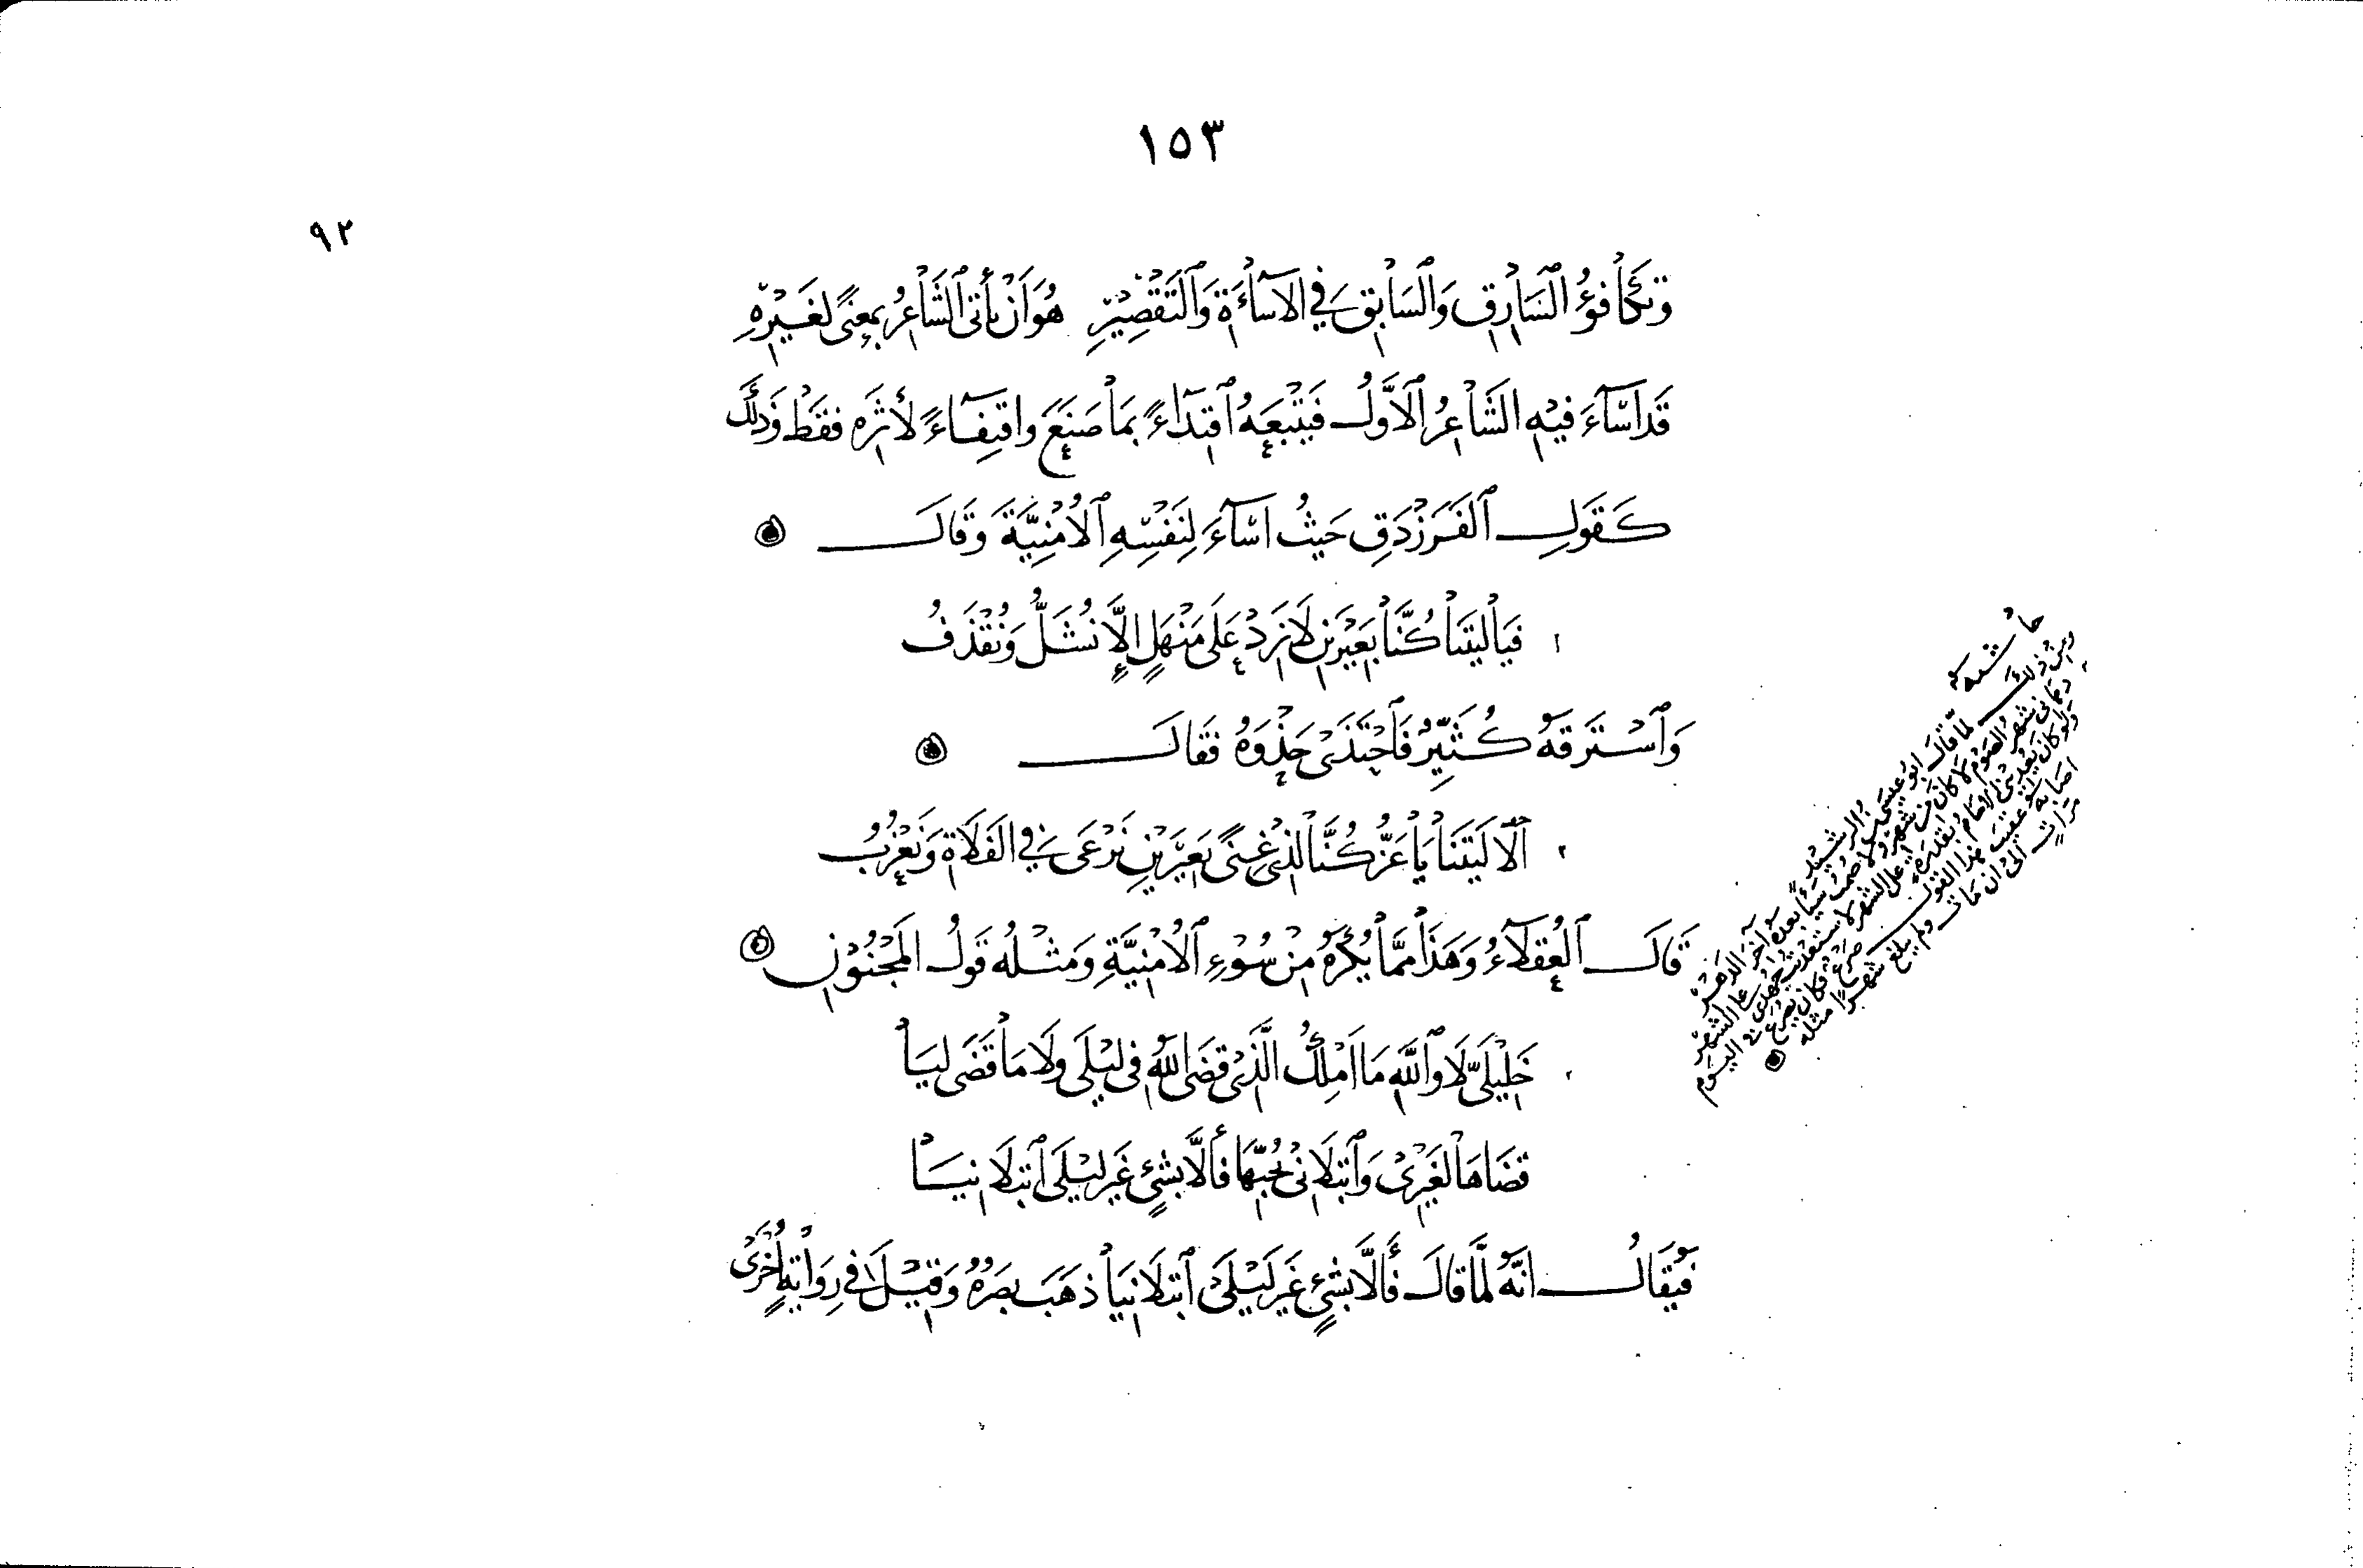 ١٥٣
٩٢
وَتَكَافُؤُ السَّارِقِ وَالسَّابِقِ فِي الْإِسَاءَةِ وَالتَّقْصِيرِ هُوَ أَنْ يَأْتِيَ الشَّاعِرُ بِمَعْنًى لِغَيْرِهِ
قَد اَسَآءَ فِيهِ الشَّاعِرُ الْأَوَّلُ فَيَتْبَعُهُ اقْتِدَآءً بِمَا صَنَعَ وَاقْتِفَآءً لِأَثَرِهِ فَقَطْ وَذَلِكَ
كَقَوْلِ الْفَرَزْدَقِ حَيْثُ اَسَآءَ لِنَفْسِهِ الْأُمْنِيَّةَ وَقَالَ
فَيَا لَيْتَنَا كُنَّا بَعِيرَيْنِ لَا نَرِدْ عَلَى مَنْهَلٍ إِلَّا نُشَلُّ وَنُقْذَفُ
وَاسْتَرَقَهُ كُثَيِّرٌ فَاحْتَذَى حَذْوَهُ فَقَالَ
أَلَا لَيْتَنَا يَا عَزُّ كُنَّا لِذِي غِنًى بَعِيرَيْنِ نَرْعَى فِي الْفَلَاةِ وَنَعْزُبُ
قَالَ الْعُقَلَآءُ وَهَذَا مِمَّا يُكْرَهُ مِنْ سُوْءِ الْأُمْنِيَّةِ وَمِثْلُهُ قَوْلُ الْمَجْنُونِ
خَلِيلَيَّ لَا وَاللَّهِ مَا اَمْلِكُ الَّذِي قَضَى اللَّهُ فِي لَيْلَى وَلَا مَا قَضَى لِيَا
قَضَاهَا لِغَيْرِي وَابْتَلَانِي بِحُبِّهَا فَأَلَّا بِشَيْءٍ غَيْرِ لَيْلَى ابْتَلَانِيَا
فَيُقَالُ انَّهُ لَمَّا قَالَ فَأَلَّا بِشَيْءٍ غَيْرِ لَيْلَى ابْتَلَانِيَا ذَهَبَ بَصَرُهُ وَقِيْلَ فِي رِوَايَةٍ أُخْرَى
حاشية
وَمِنْ ذَلِكَ لمّا قالَ ابُو عيسَى بن الرشيد
دهاني شهر الصوم لا كان من شهر ولا صمت شيئا بعده آخر الدهر
ولو كان يعديني الامام بقدرة على الشهر لاستعديت جهدي على الشهر
اصابه عقيب هذا القول صرع فكان يصرع في اليوم
مرات الى ان مات ولم يبلغ شهرا مثله